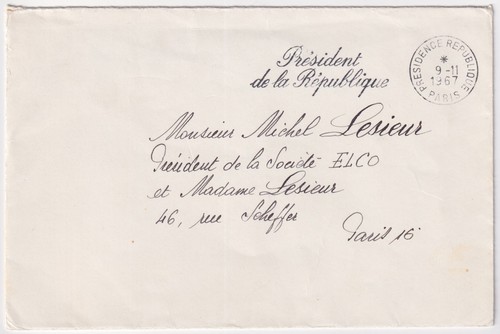 Président
de la République
PRESIDENCE REPUBLIQUE
*
9-11
1967
PARIS
Monsieur Michel Lesieur
Président de la Société ELCO
et Madame Lesieur
46, rue Scheffer
Paris 16